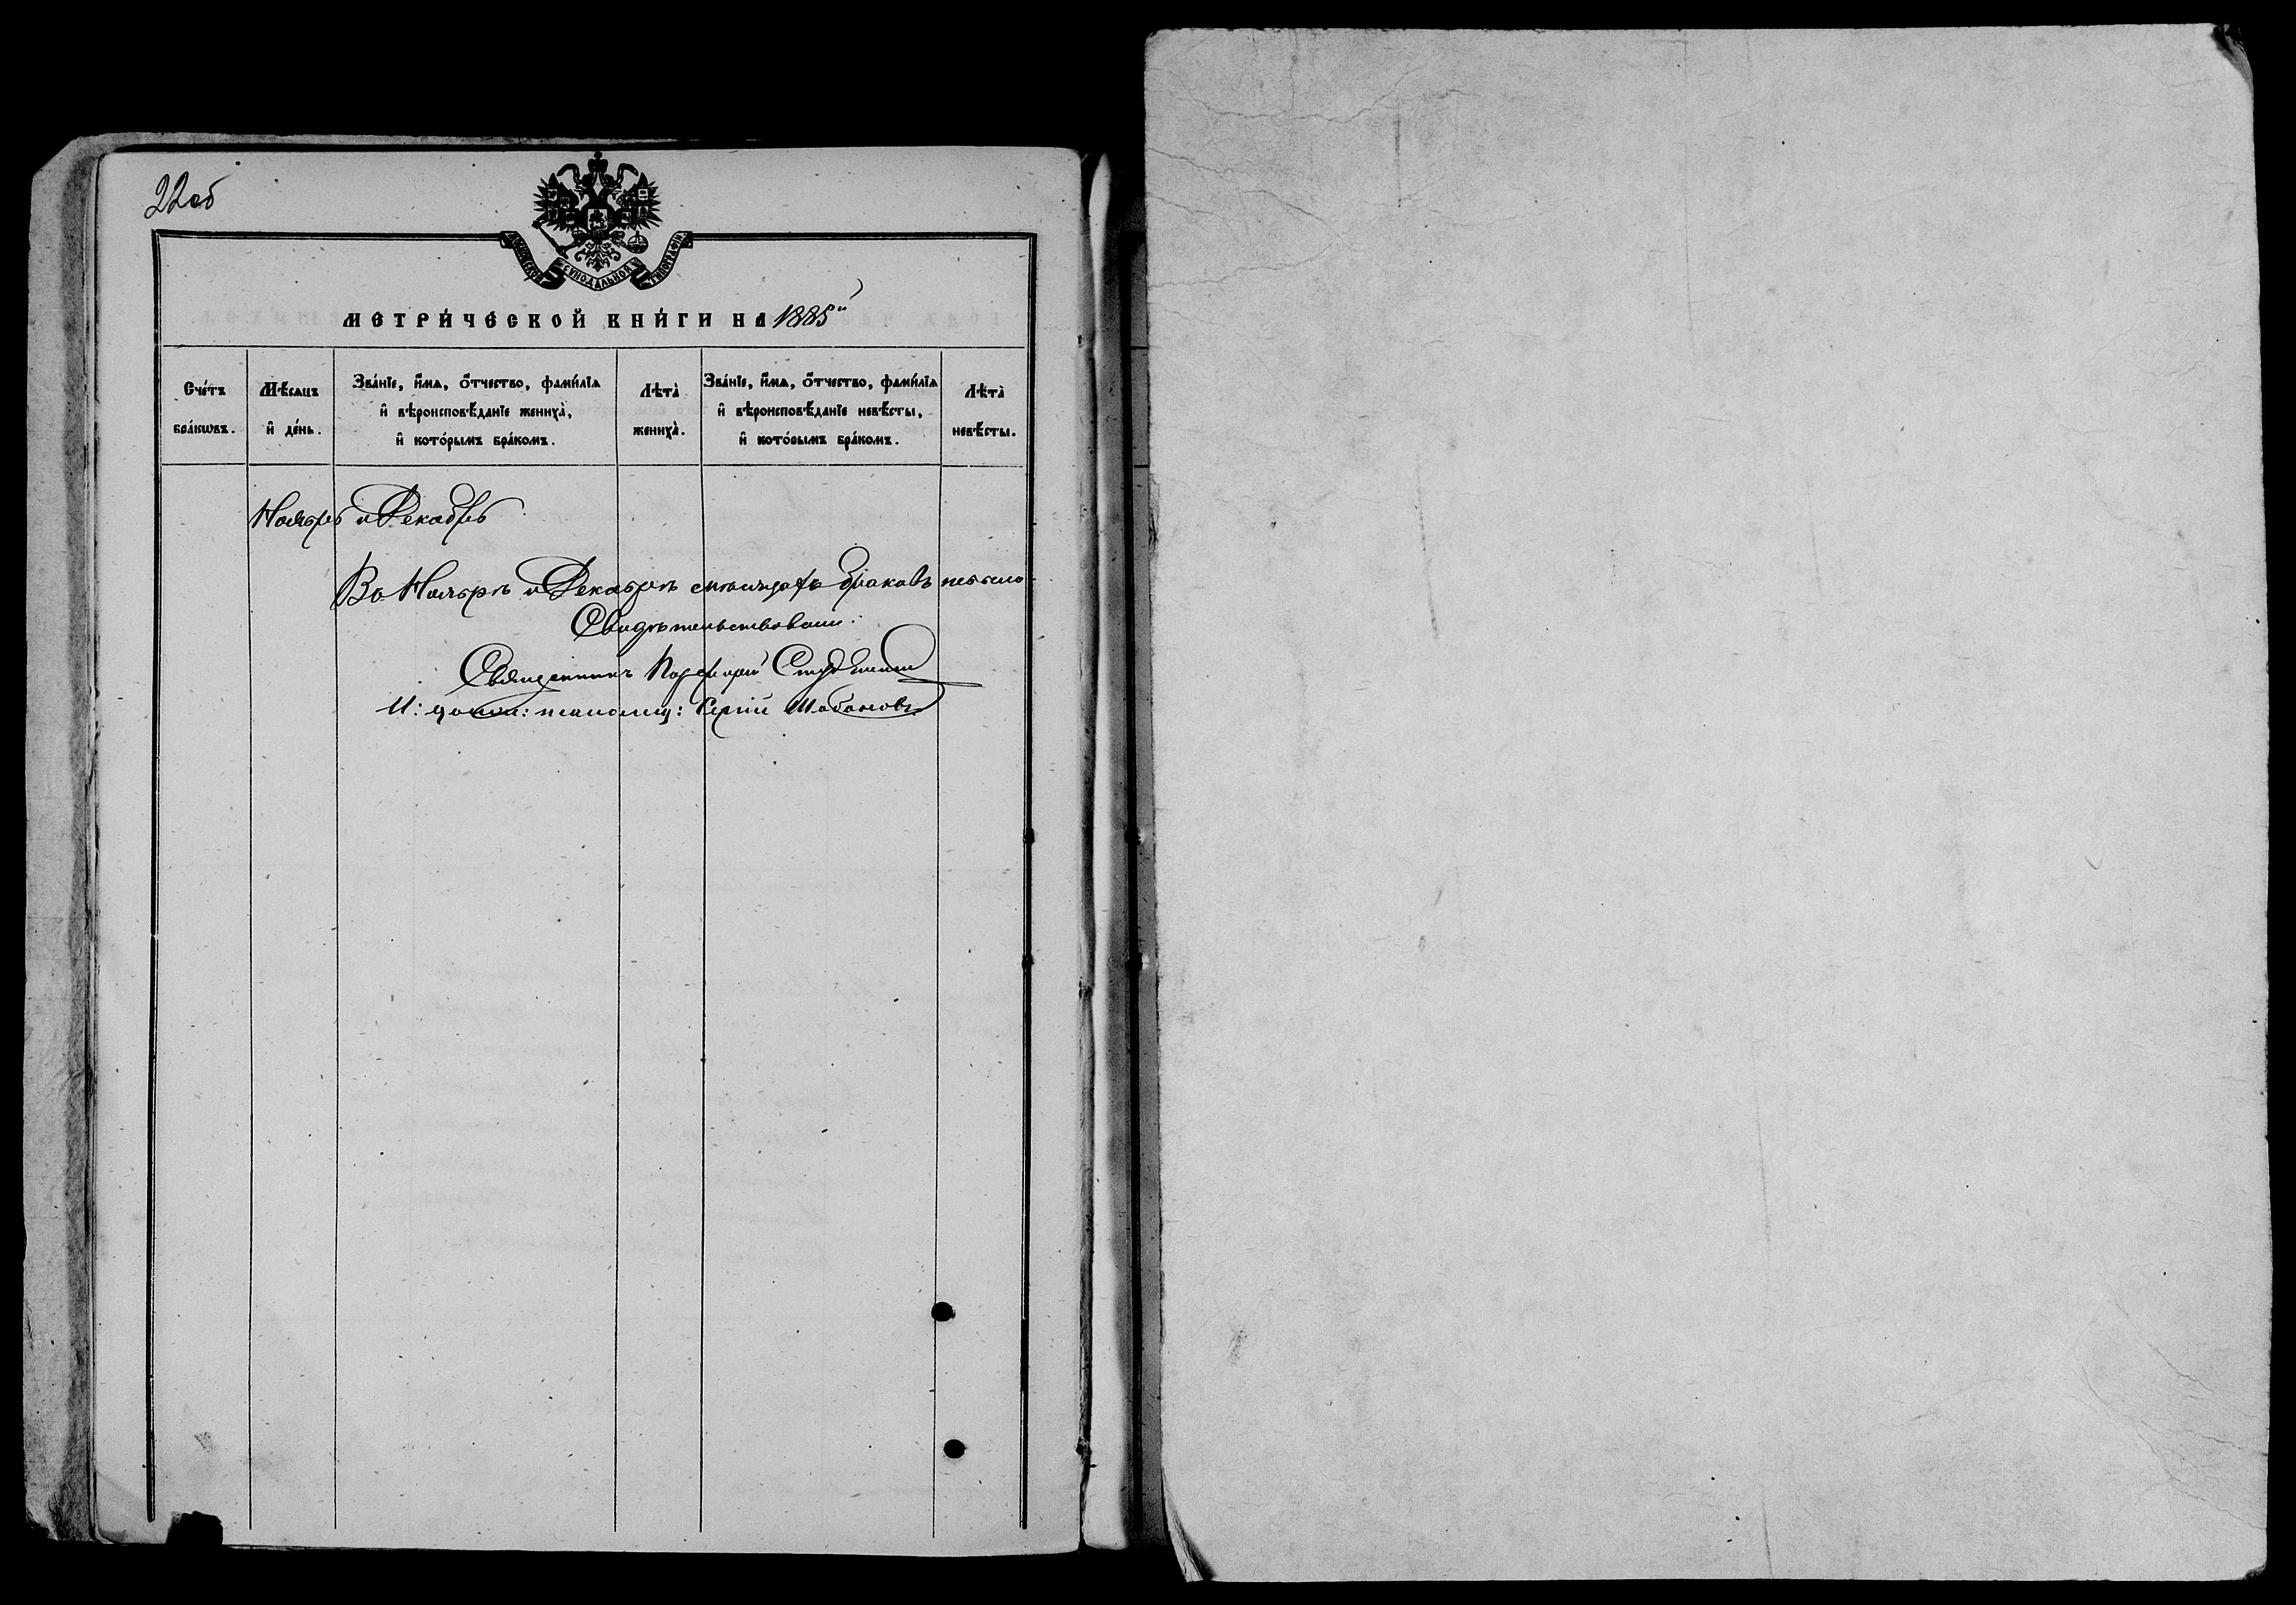 22об
МОСКОВСКОЙ СѴНОДАЛЬНОЙ ТИПОГРАФІИ
МЕТРИ́ЧЕСКОЙ КНИ́ГИ НА 1885й
Сче́тъ бра́кѡвъ.
Мѣ́сѧцъ и҆ де́нь.
Зва́нїе, и҆́мѧ, ѻ҆́тчество, фами́лїѧ
и҆ вѣроисповѣ́данїе жениха̀,
и҆ кото́рымъ бра́комъ.
Лѣта̀ жениха̀.
Зва́нїе, и҆́мѧ, ѻ҆́тчество, фами́лїѧ
и҆ вѣроисповѣ́данїе невѣ́сты,
и҆ кото́рымъ бра́комъ.
Лѣта̀ невѣ́сты.
Ноябрь и Декабрь
Во Ноябрѣ и Декабрѣ мѣсяцахъ браковъ небыло
Свидѣтельствовали:
Священникъ Порфирій
И: должн: псаломщ: Сергій Шабановъ